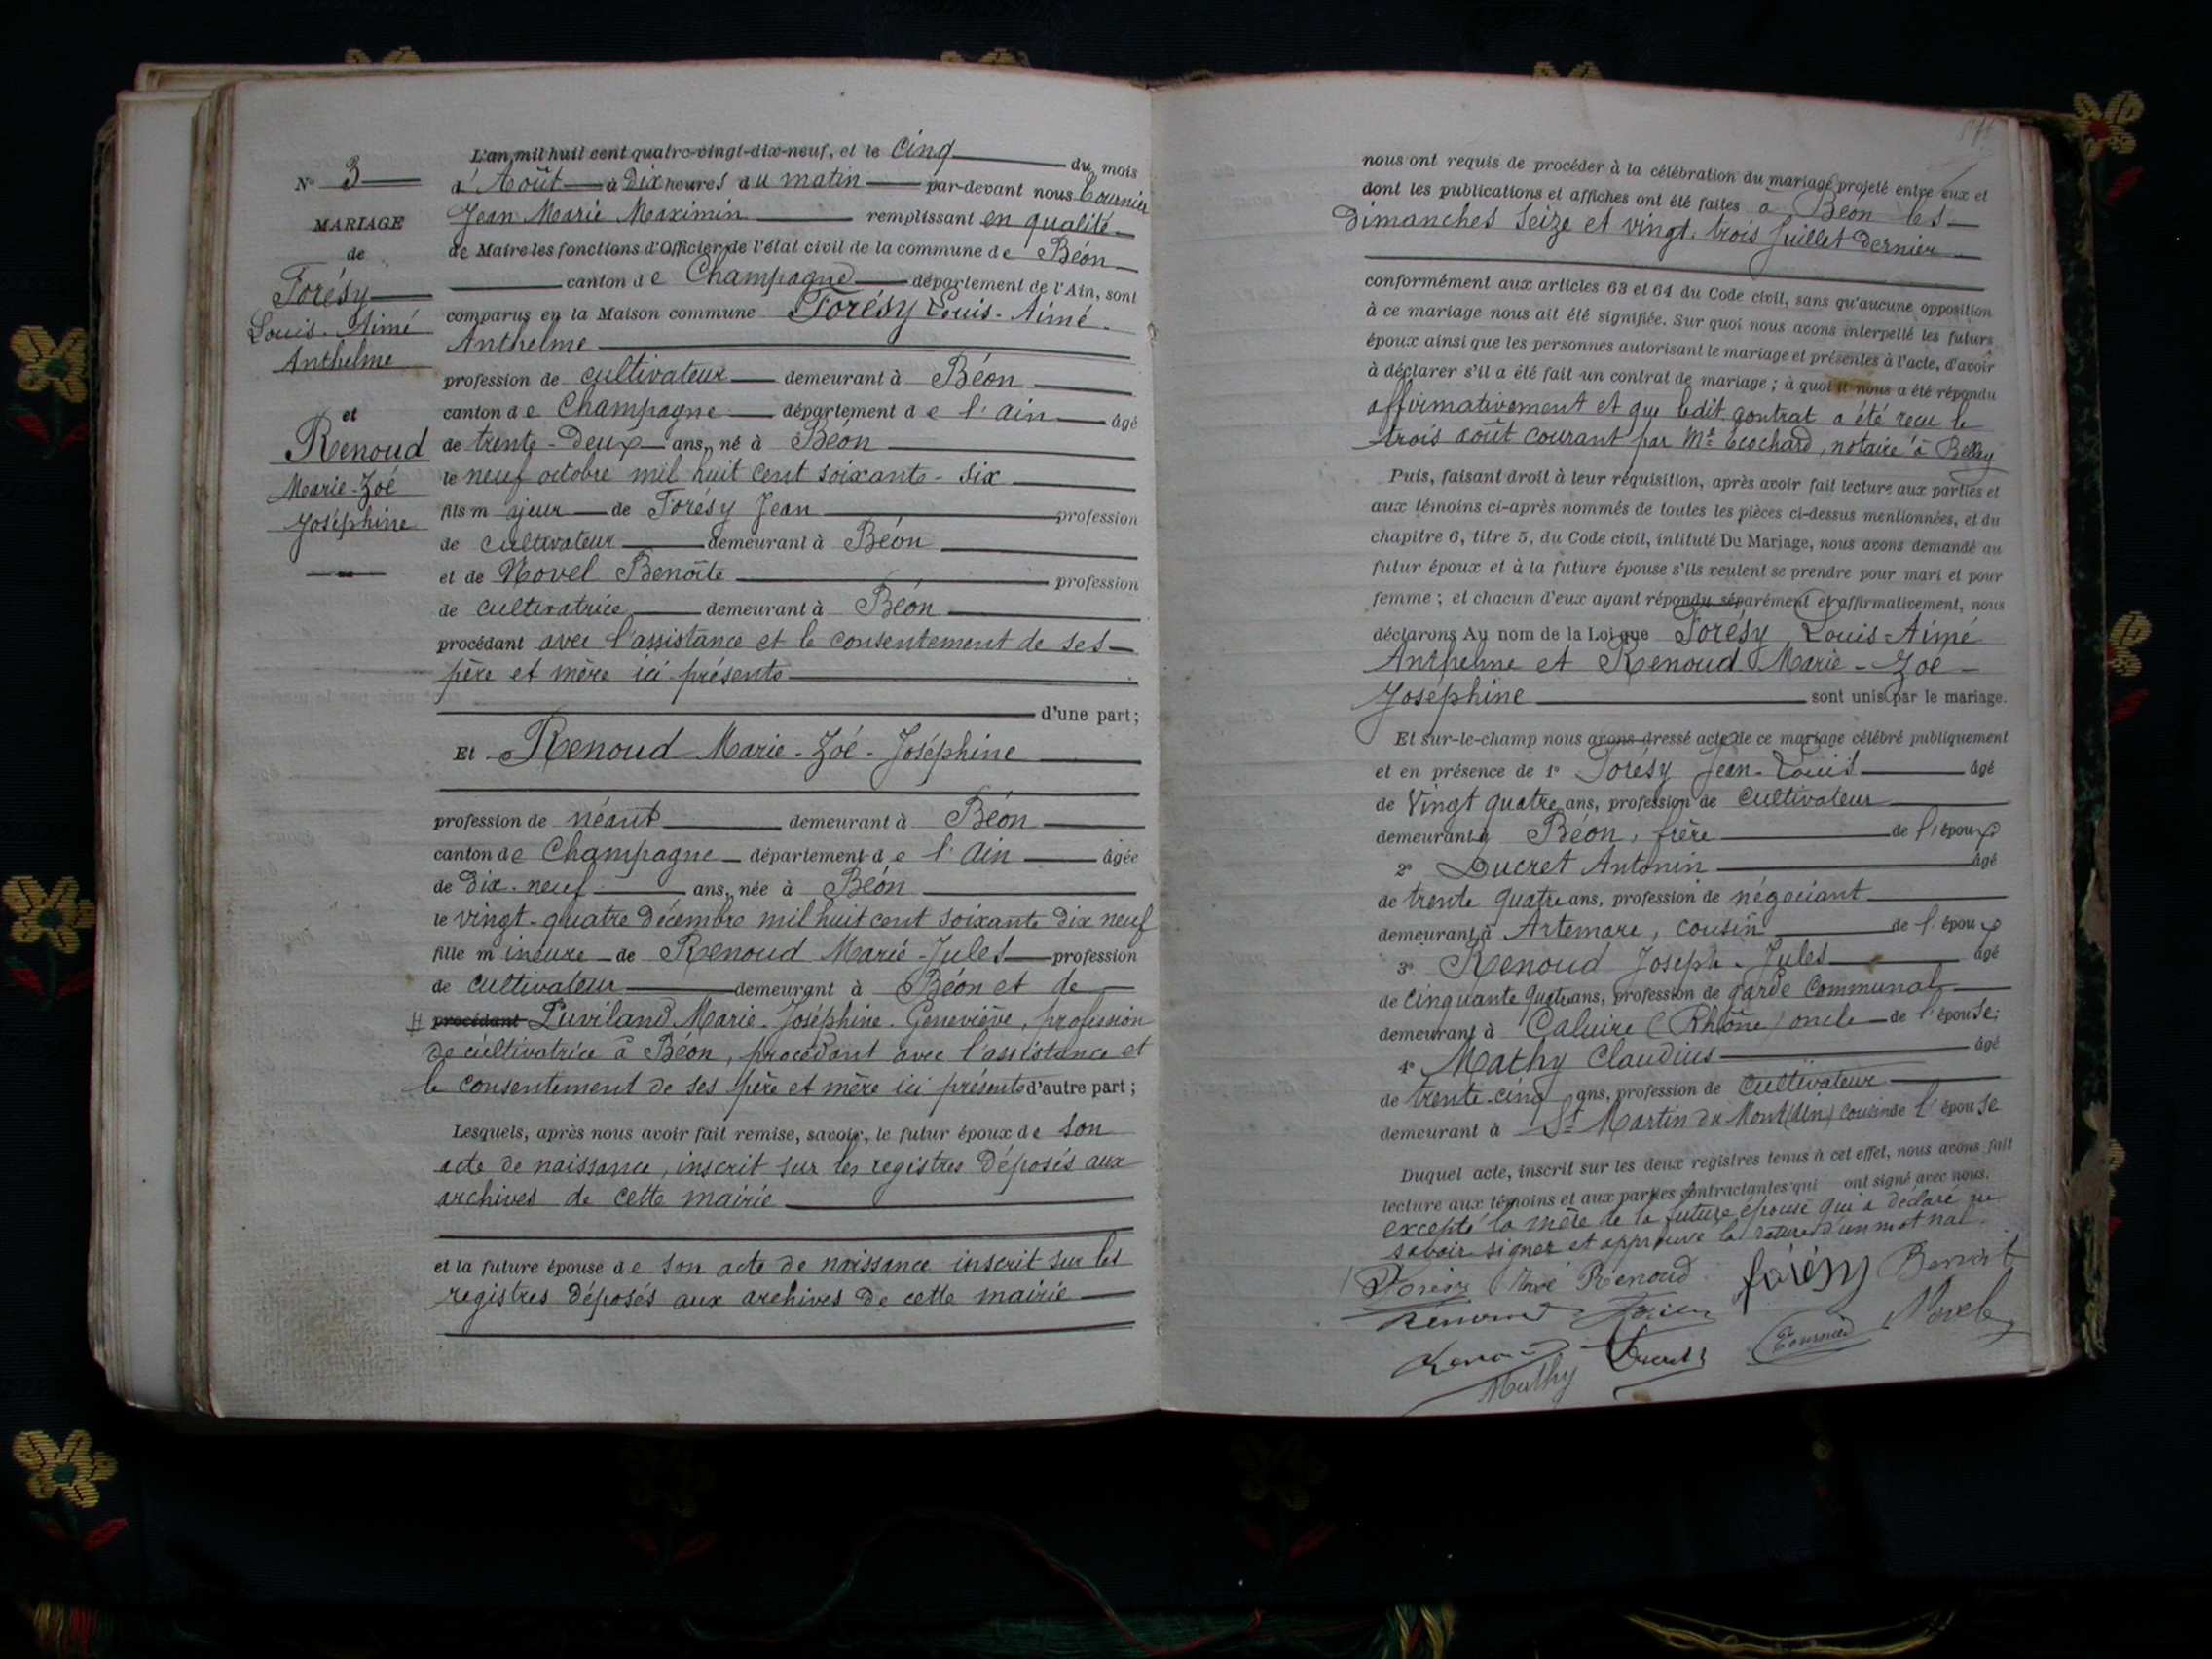 N° 3
MARIAGE
de
Forésy
Louis-Aimé
Anthelme
et
Renoud
Marie-Zoé
Joséphine
L'an mil huit cent quatre-vingt-dix-neuf, et le cinq du mois
d'Août à Dix heures du matin par-devant nous Cournier
Jean Marie Maximin remplissant en qualité
de Maire les fonctions d'Officier de l'état civil de la commune de Béon
canton de Champagne département de l'Ain, sont
comparus en la Maison commune Forésy Louis-Aimé-
Anthelme
profession de cultivateur demeurant à Béon
canton de Champagne département de l'Ain âgé
de trente-deux ans, né à Béon
le neuf octobre mil huit cent soixante-six
fils majeur de Forésy Jean profession
de cultivateur demeurant à Béon
et de Novel Benoîte profession
de cultivatrice demeurant à Béon
procédant avec l'assistance et le consentement de ses
père et mère ici présents
d'une part;
Et Renoud Marie-Zoé-Joséphine
profession de néant demeurant à Béon
canton de Champagne département de l'Ain âgée
de dix-neuf ans, née à Béon
le vingt-quatre décembre mil huit cent soixante dix neuf
fille mineure de Renoud Marie-Jules profession
de cultivateur demeurant à Béon et de
procédant Puviland Marie-Joséphine-Geneviève, profession
de cultivatrice à Béon, procédant avec l'assistance et
le consentement de ses père et mère ici présents d'autre part;
Lesquels, après nous avoir fait remise, savoir, le futur époux de son
acte de naissance, inscrit sur les registres déposés aux
archives de cette mairie
et la future épouse de son acte de naissance inscrit sur les
registres déposés aux archives de cette mairie
nous ont requis de procéder à la célébration du mariage projeté entre eux et
dont les publications et affiches ont été faites à Béon les
dimanches seize et vingt-trois Juillet dernier
conformément aux articles 63 et 64 du Code civil, sans qu'aucune opposition
à ce mariage nous ait été signifiée. Sur quoi nous avons interpellé les futurs
époux ainsi que les personnes autorisant le mariage et présentes à l'acte, d'avoir
à déclarer s'il a été fait un contrat de mariage; à quoi il nous a été répondu
affirmativement et que ledit contrat a été reçu le
trois août courant par Me Ecochard, notaire à Belley
Puis, faisant droit à leur réquisition, après avoir fait lecture aux parties et
aux témoins ci-après nommés de toutes les pièces ci-dessus mentionnées, et du
chapitre 6, titre 5, du Code civil, intitulé Du Mariage, nous avons demandé au
futur époux et à la future épouse s'ils veulent se prendre pour mari et pour
femme; et chacun d'eux ayant répondu séparément et affirmativement, nous
déclarons Au nom de la Loi que Forésy Louis-Aimé
Anthelme et Renoud Marie-Zoé-
Joséphine sont unis par le mariage.
Et sur-le-champ nous avons dressé acte de ce mariage célébré publiquement
et en présence de 1° Forésy Jean-Louis âgé
de Vingt quatre ans, profession de cultivateur
demeurant à Béon, frère de l'époux
2° Ducret Antonin âgé
de trente quatre ans, profession de négociant
demeurant à Artemare, cousin de l'époux
3° Renoud Joseph-Jules âgé
de cinquante quatre ans, profession de garde communal
demeurant à Caluire (Rhône) oncle de l'épouse;
4° Mathy Claudius âgé
de trente-cinq ans, profession de cultivateur
demeurant à St Martin du Mont (Ain) cousin de l'épouse
Duquel acte, inscrit sur les deux registres tenus à cet effet, nous avons fait
lecture aux témoins et aux parties contractantes qui ont signé avec nous.
excepté la mère de la future épouse qui a déclaré ne
savoir signer et approuvé la rature d'un mot nul.
Renoud Forésy Benoît
Novel
Ducret Cournier
Mathy